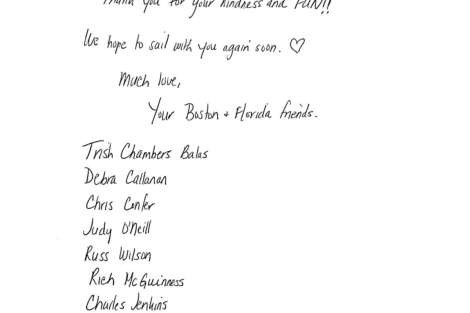 Thank you for your kindness and FUN!!
We hope to sail with you again soon. ♡
Much love,
Your Boston + Florida friends.
Trish Chambers Balas
Debra Callanan
Chris Confer
Judy O'Neill
Russ Wilson
Rich McGuinness
Charles Jenkins